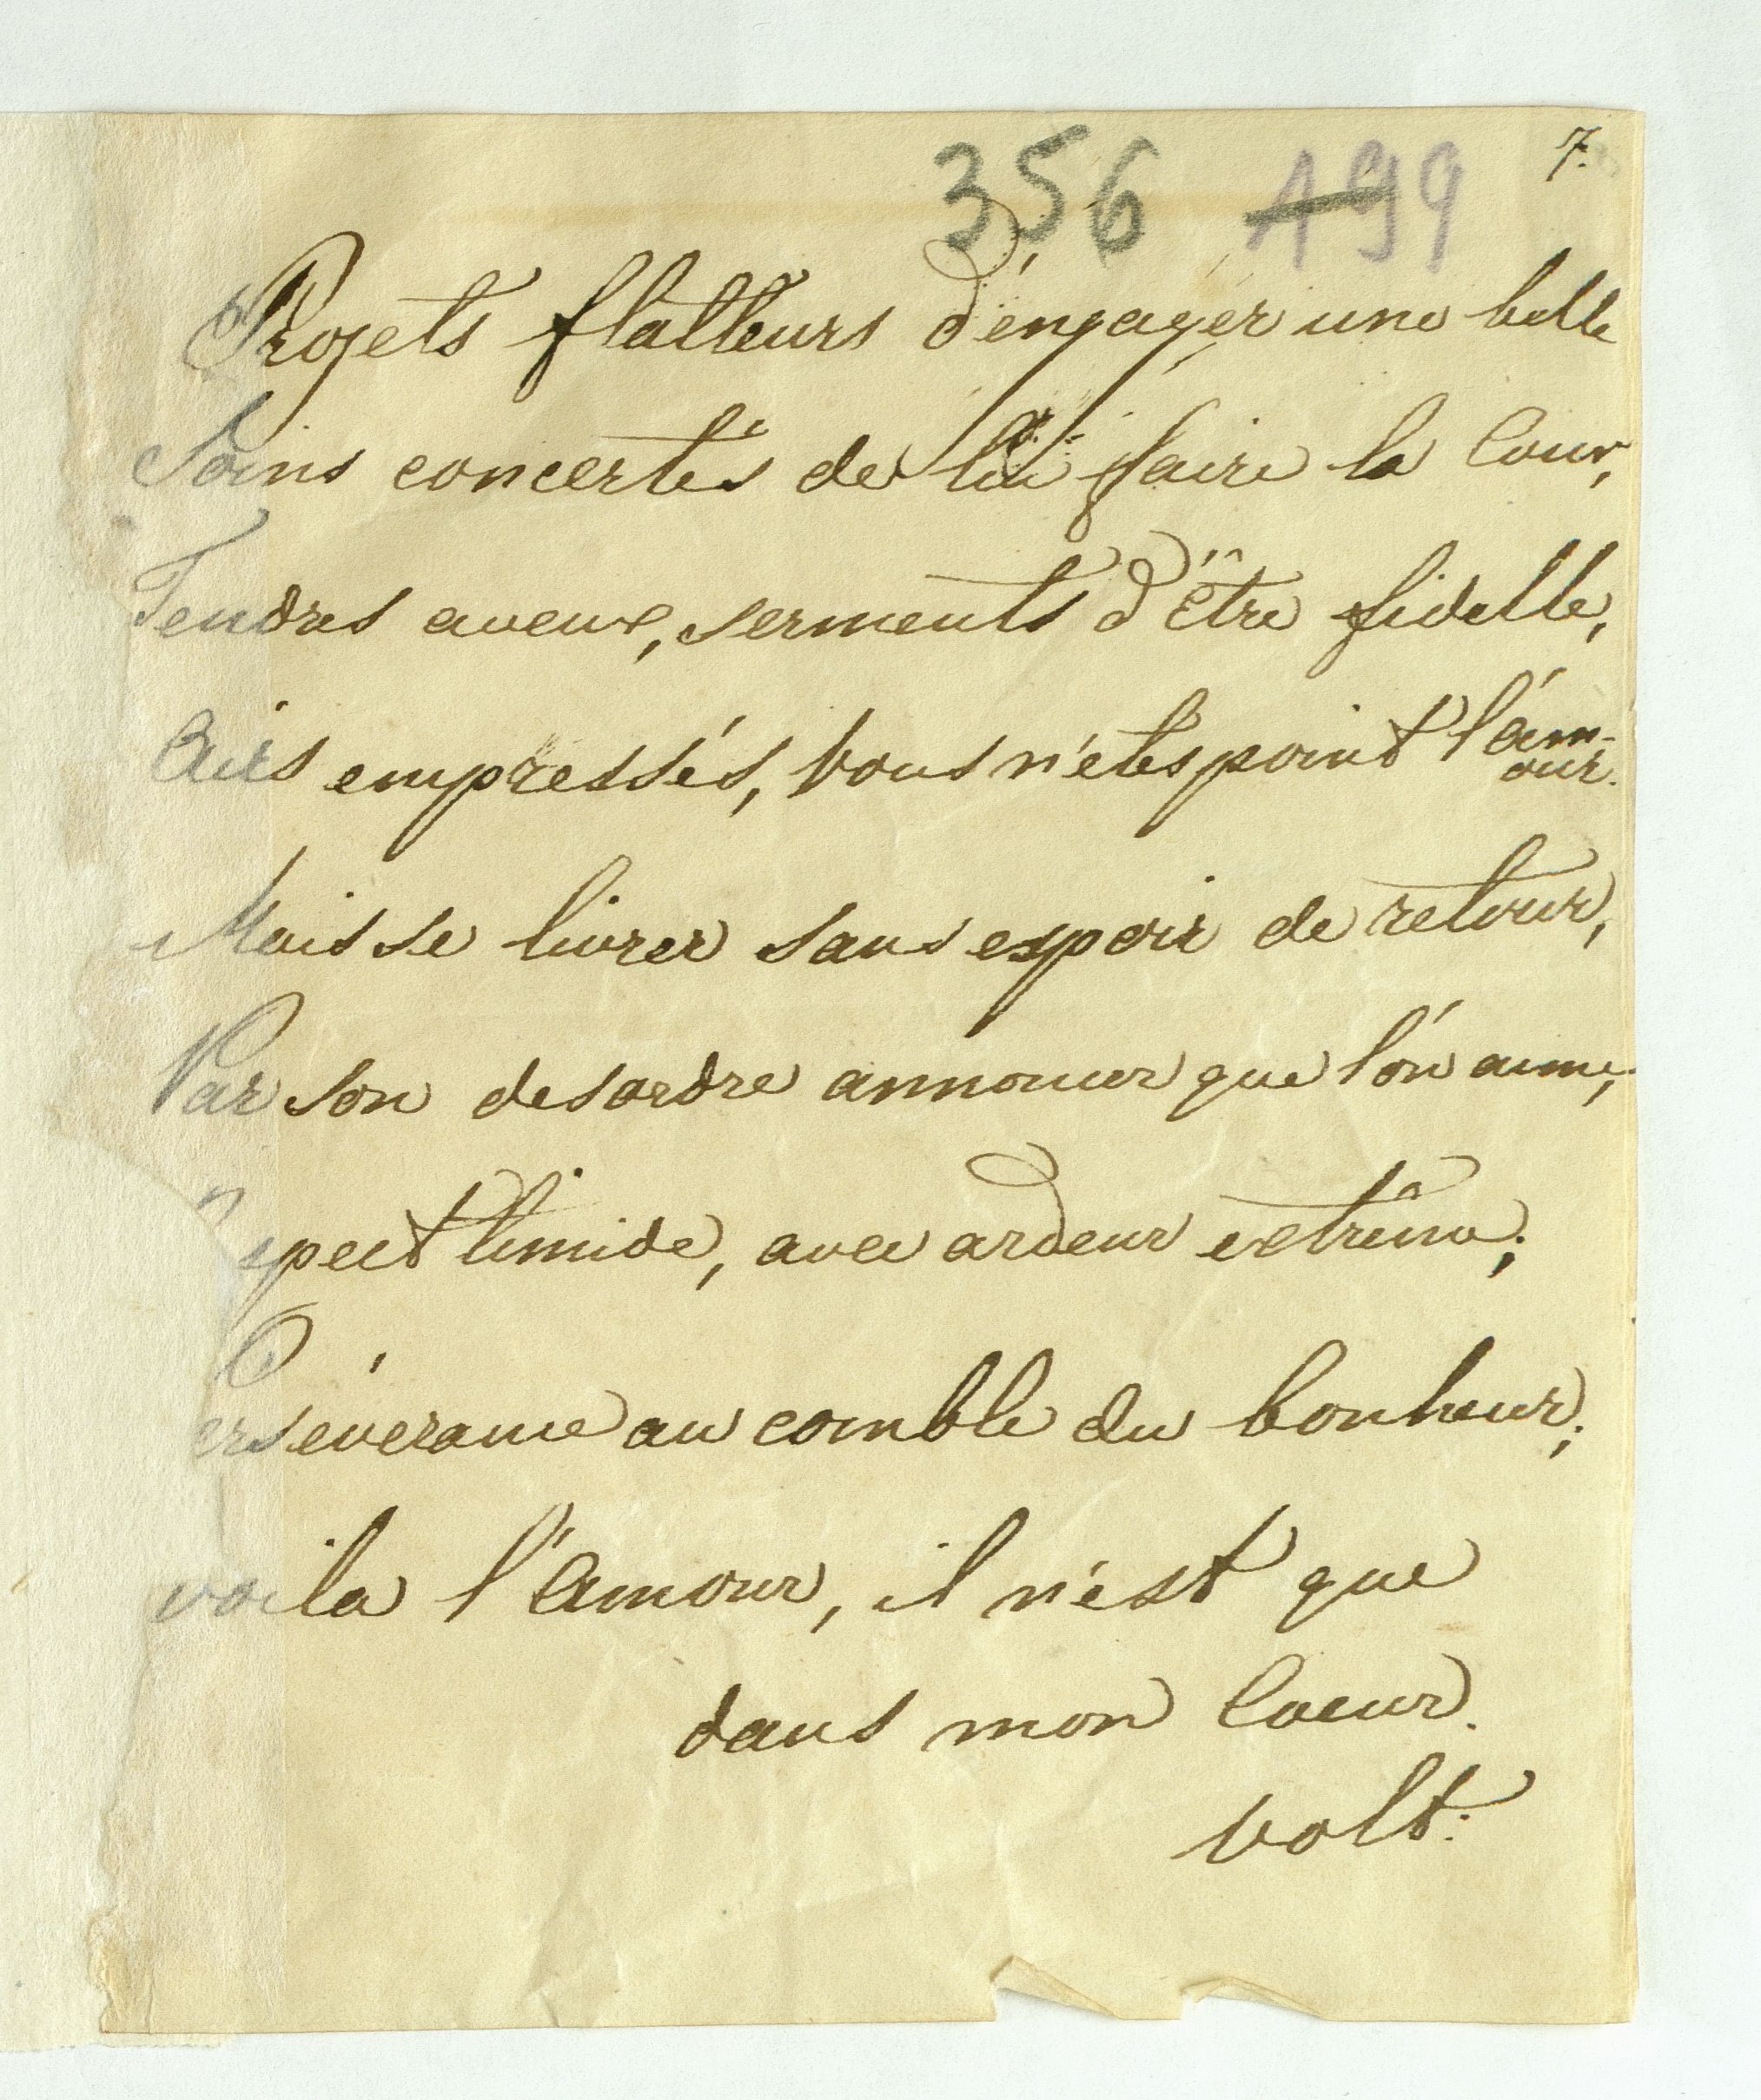 356 199 7.
Projets flatteurs d'engager une belle
Soins concertés de lui faire la Cour,
Tendres aveux, serments d'être fidelle,
Airs empressés, Vous n'étes point l'Am-
our.
Mais se livrer sans espoir de retour,
Par son desordre annoncer que l'on aime,
spect timide, avec ardeur extrême;
Persévérance au comble du bonheur;
voila l'Amour, il n'est que
dans mon Coeur.
Volt: